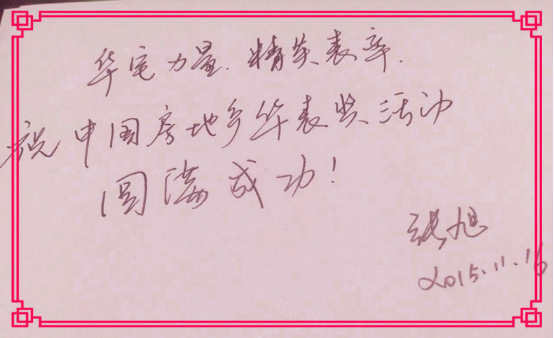 华宅力量.精英表率.
祝中国房地产华表奖活动
圆满成功!
张旭
2015.11.16